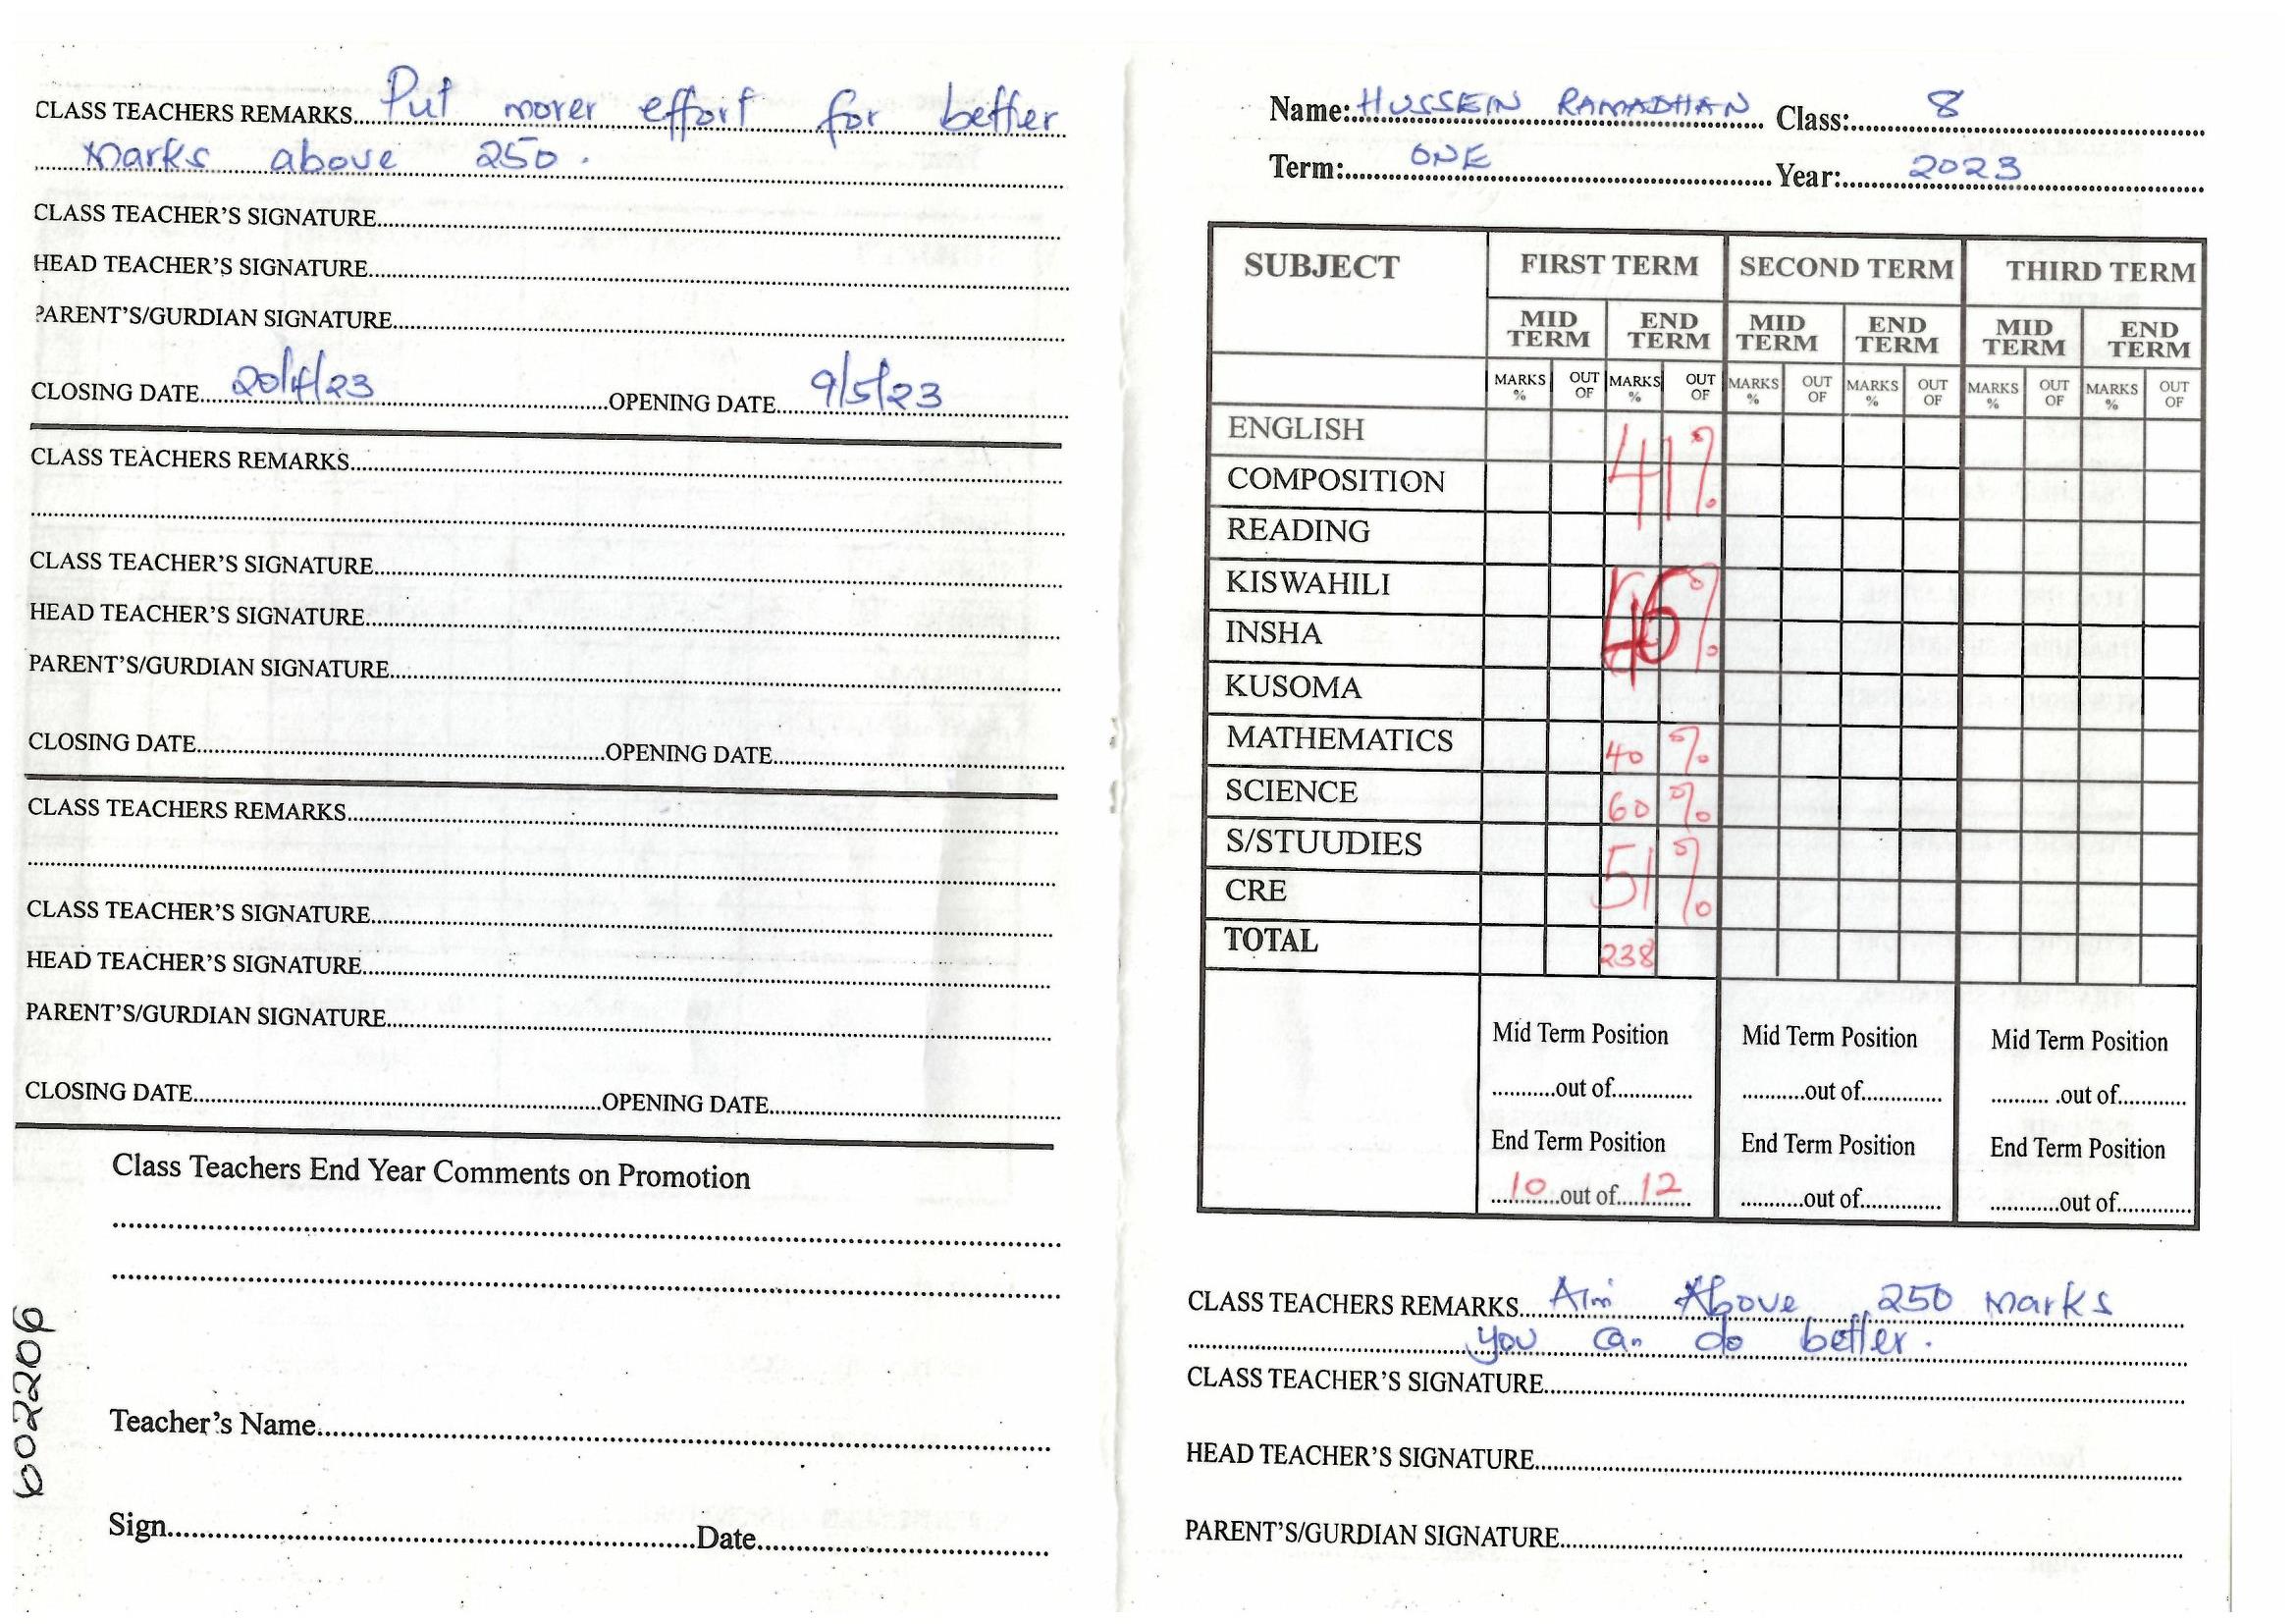 CLASS TEACHERS REMARKS Put morer effort for better
marks above 250.
CLASS TEACHER'S SIGNATURE
HEAD TEACHER'S SIGNATURE
PARENT'S/GURDIAN SIGNATURE
CLOSING DATE 20/4/23 OPENING DATE 9/5/23
CLASS TEACHERS REMARKS
CLASS TEACHER'S SIGNATURE
HEAD TEACHER'S SIGNATURE
PARENT'S/GURDIAN SIGNATURE
CLOSING DATE OPENING DATE
CLASS TEACHERS REMARKS
CLASS TEACHER'S SIGNATURE
HEAD TEACHER'S SIGNATURE
PARENT'S/GURDIAN SIGNATURE
CLOSING DATE OPENING DATE
Class Teachers End Year Comments on Promotion
Teacher's Name
Sign Date
Name: HUSSEIN RAMADHAN Class: 8
Term: ONE Year: 2023
SUBJECT FIRST TERM SECOND TERM THIRD TERM
MID TERM END TERM MID TERM END TERM MID TERM END TERM
MARKS % OUT OF MARKS % OUT OF MARKS % OUT OF MARKS % OUT OF MARKS % OUT OF MARKS % OUT OF
ENGLISH
COMPOSITION 41%
READING
KISWAHILI
INSHA 46%
KUSOMA
MATHEMATICS 40 %
SCIENCE 60 %
S/STUUDIES 51%
CRE
TOTAL 238
Mid Term Position Mid Term Position Mid Term Position
out of out of out of
End Term Position End Term Position End Term Position
10 out of 12 out of out of
CLASS TEACHERS REMARKS Aim Above 250 marks
you can do better.
CLASS TEACHER'S SIGNATURE
HEAD TEACHER'S SIGNATURE
PARENT'S/GURDIAN SIGNATURE